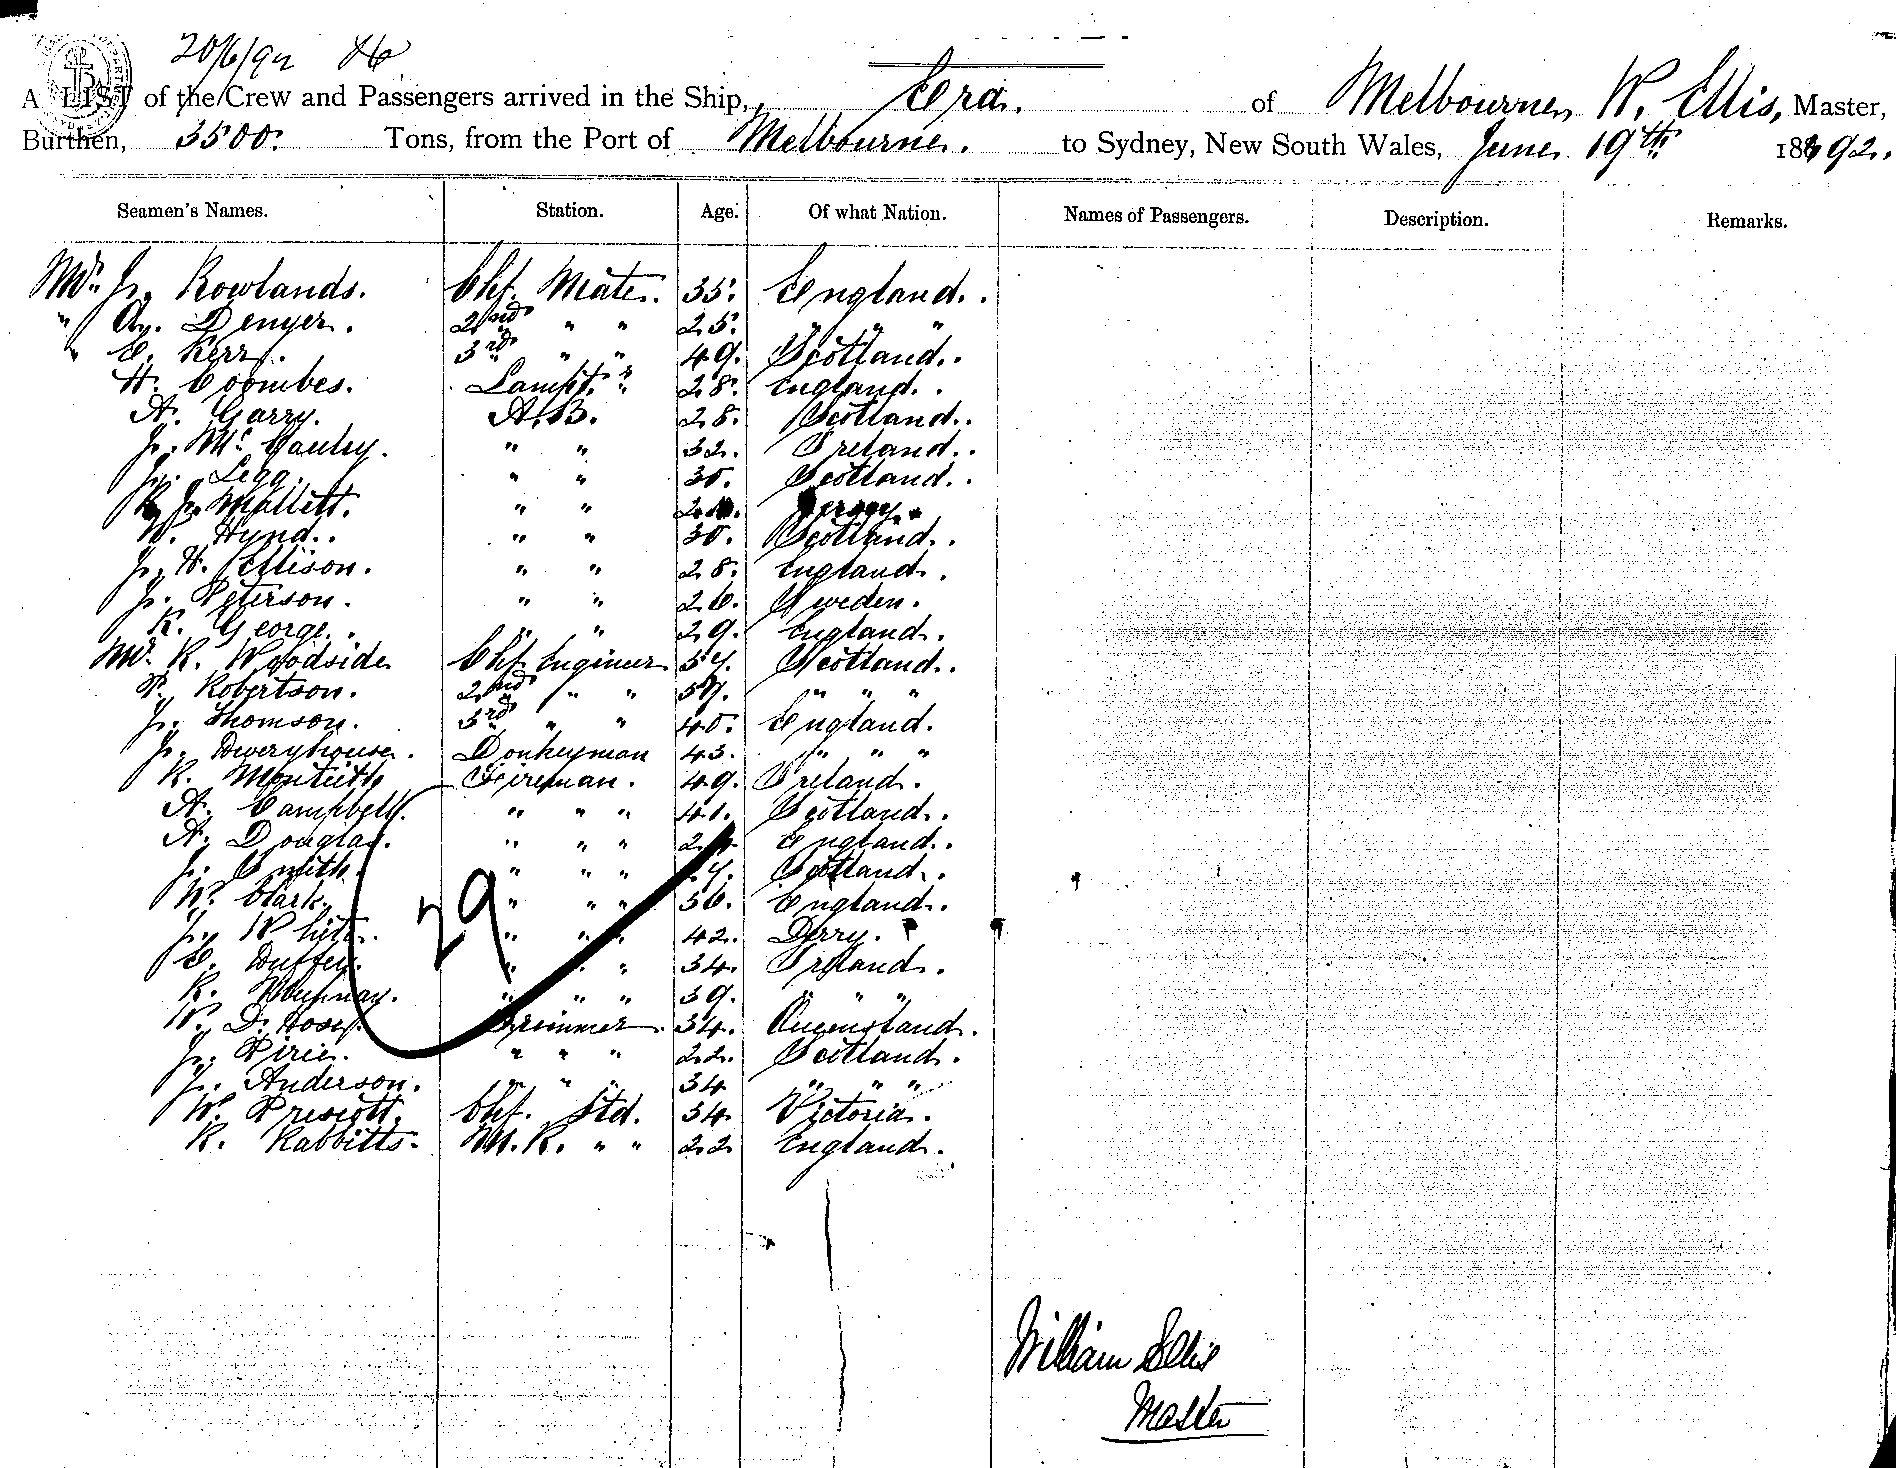 20/6/92
A LIST of the Crew and Passengers arrived in the Ship, Era. of Melbourne, W. Ellis, Master,
Burthen, 3500. Tons, from the Port of Melbourne. to Sydney, New South Wales, June 19th 1892.
Seamen's Names. Station. Age. Of what Nation. Names of Passengers. Description. Remarks.
Mr. J. Rowlands. Chf. Mate. 35. England.
" A. Denyer. 2nd " " 25. " " "
" C. Kerr. 3rd " " 49. Scotland.
H. Coombes. Lampt.r 28. England.
A. Garry. A.B. 28. Scotland.
J. Mc. Cauley. " " 32. Ireland.
J. Legg. " " 30. Scotland.
J. Mallett. " " Jersey.
W. Hynd. " " 30. Scotland.
J. H. Ellison. " " 28. England.
J. Peterson. " " 26. Sweden.
R. George. " " 29. England.
Mr. R. Woodside Chf. Engineer 54. Scotland.
P. Robertson. 2nd " " " " "
J. Thomson. 3rd " " 40. England.
J. Dweryhouse. Donkeyman 43. " " "
R. Monteith Fireman. 49. Ireland.
A. Campbell. " " " 41. Scotland.
A. Douglas. " " " England.
J. Smith. " " " Scotland.
W. Clark. " " " 36. England.
J. White. " " " 42. Derry.
C. Duffey. " " " 34. Ireland.
R. " " " 39. " " "
W. D. Trimmer. 34. Queensland.
J. Pirie. " " " 22. Scotland.
J. Anderson. " " " 34 " " "
W. Prescott. Chf. Std. 34. Victoria.
R. Rabbitts. M.R. " " 22 England.
29
William Ellis
Master